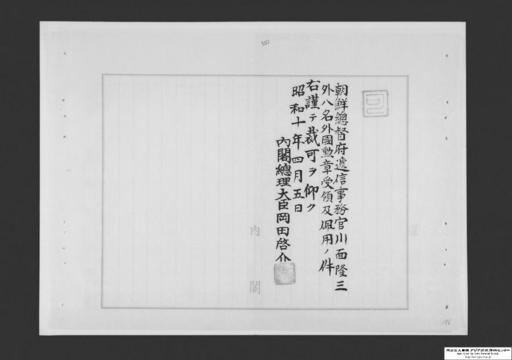 朝鮮總督府遞信事務官川面隆三
外八名外國勲章受領及佩用ノ件
右謹テ裁可ヲ仰ク
昭和十年四月五日
內閣總理大臣岡田啓介
內閣